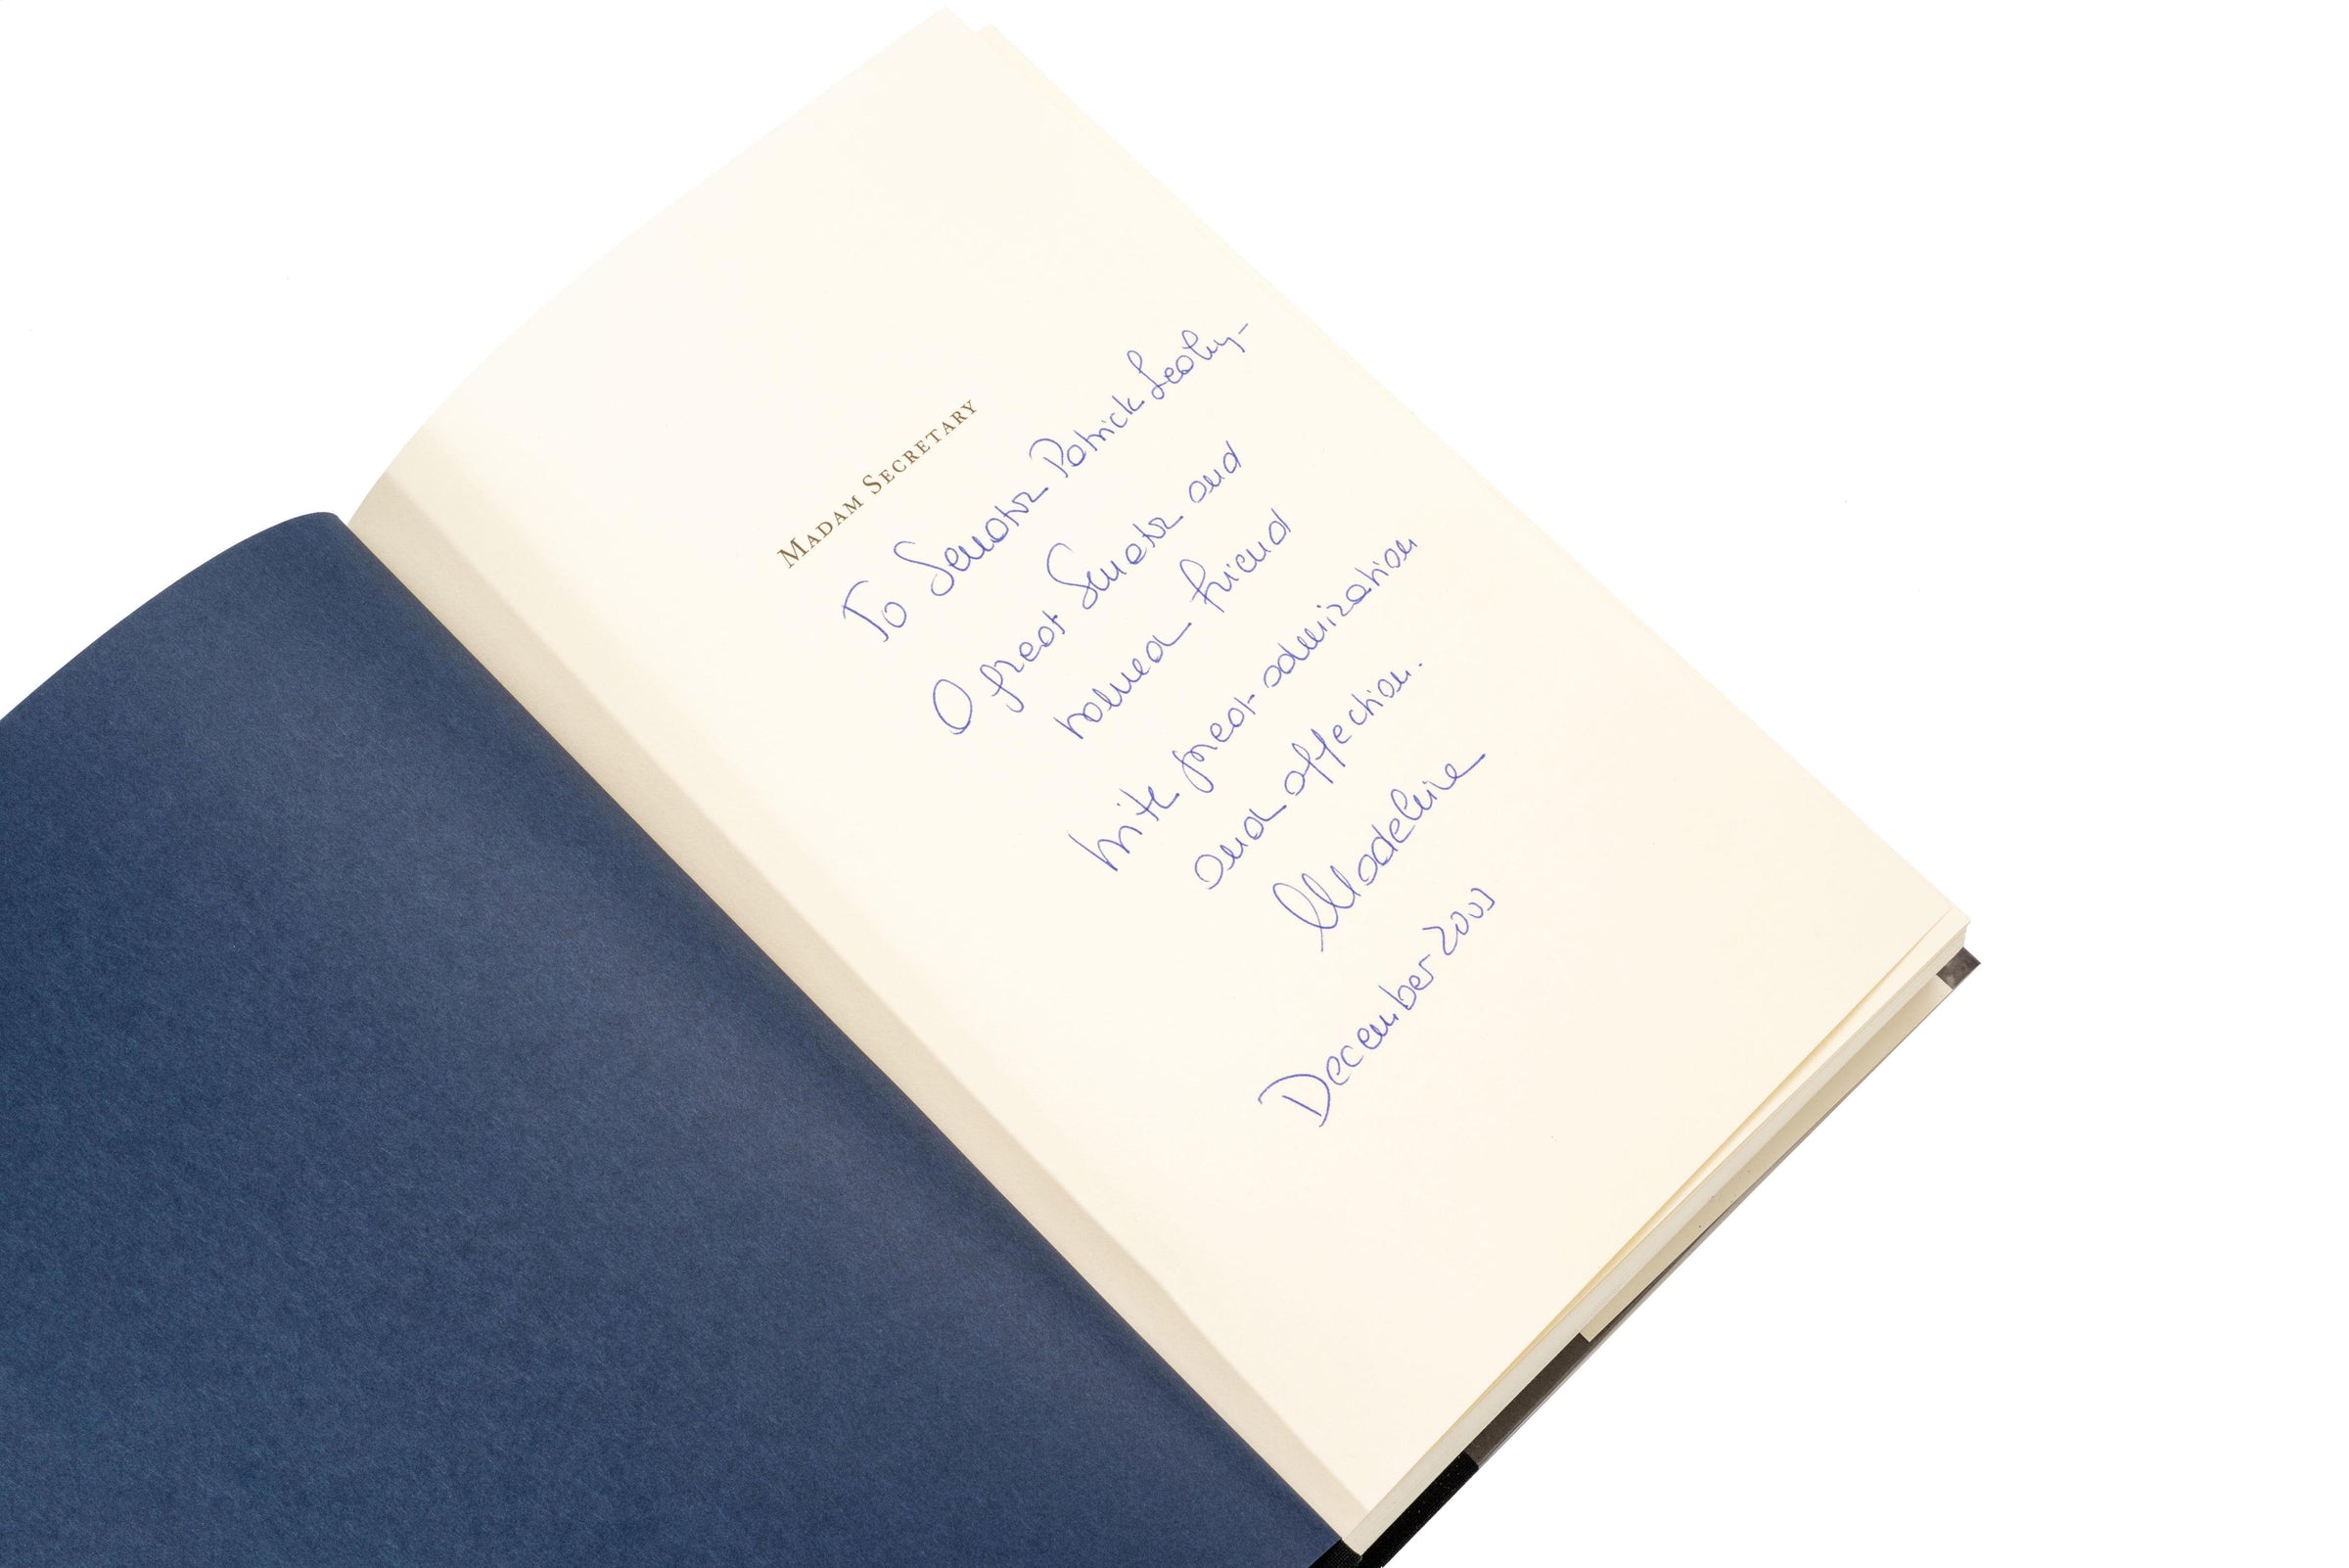 MADAM SECRETARY
To Senator Patrick Leahy-
A great Senator and
valued friend
With great admiration
and affection.
Madeleine
December 2003